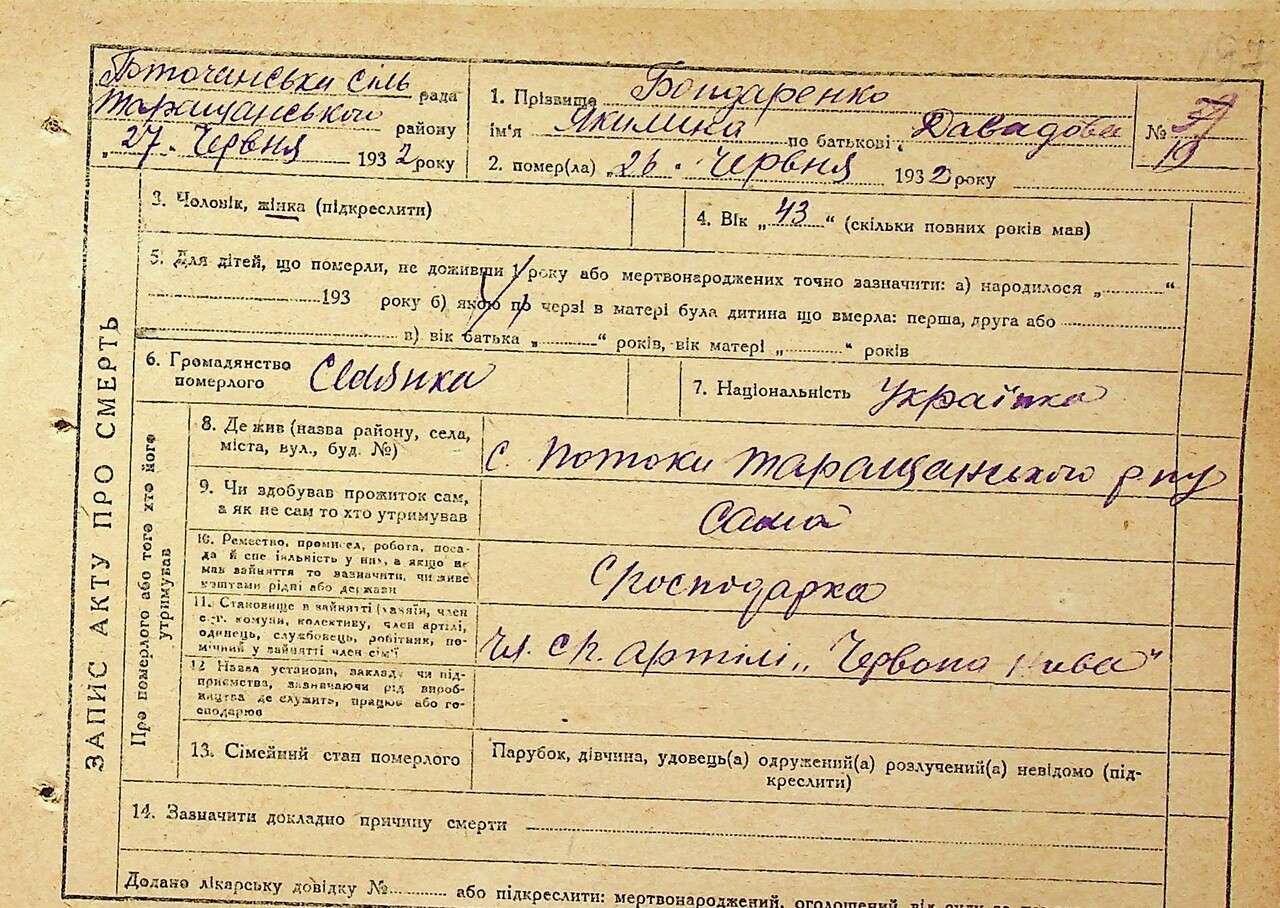 Поточанська сіль рада
Таращанського району
„27. Червня 1932 року
1. Прізвище Бондаренко
ім'я Якилина по батькові Давадова
2. помер(ла) „26. Червня 1932 року
№ 19
3. Чоловік, жінка (підкреслити)
4. Вік „43“ (скільки повних років мав)
5. Для дітей, що померли, не доживши 1 року або мертвонароджених точно зазначити: а) народилося „..........“
193 року б) якою по черзі в матері була дитина що вмерла: перша, друга або
в) вік батька „..........“ років, вік матері „..........“ років
6. Громадянство
померлого Селянка
7. Національність Українка
ЗАПИС АКТУ ПРО СМЕРТЬ
Про померлого або того хто його
утримував
8. Де жив (назва району, села,
міста, вул., буд. №)
с. Потоки Таращанського р-ну
9. Чи здобував прожиток сам,
а як не сам то хто утримував
Сама
10. Ремество, промисел, робота, поса-
да й спеціяльність у них, а якщо не
мав зайняття то зазначити, чи живе
коштами рідні або держави
Господарка
11. Становище в зайнятті (хазяїн, член
с.-г. комуни, колективу, член артілі,
одинець, службовець, робітник, по-
мічний у зайнятті член сім'ї
чл. СГ. артілі „Червона нива“
12 Назва установи, закладу чи під-
приємства, зазначаючи рід вироб-
ництва де служить, працює або го-
сподарює
13. Сімейний стан померлого
Парубок, дівчина, удовець(а) одружений(а) розлучений(а) невідомо (під-
креслити)
14. Зазначити докладно причину смерти
Додано лікарську довідку № .......... або підкреслити: мертвонароджений, оголошений від суду за